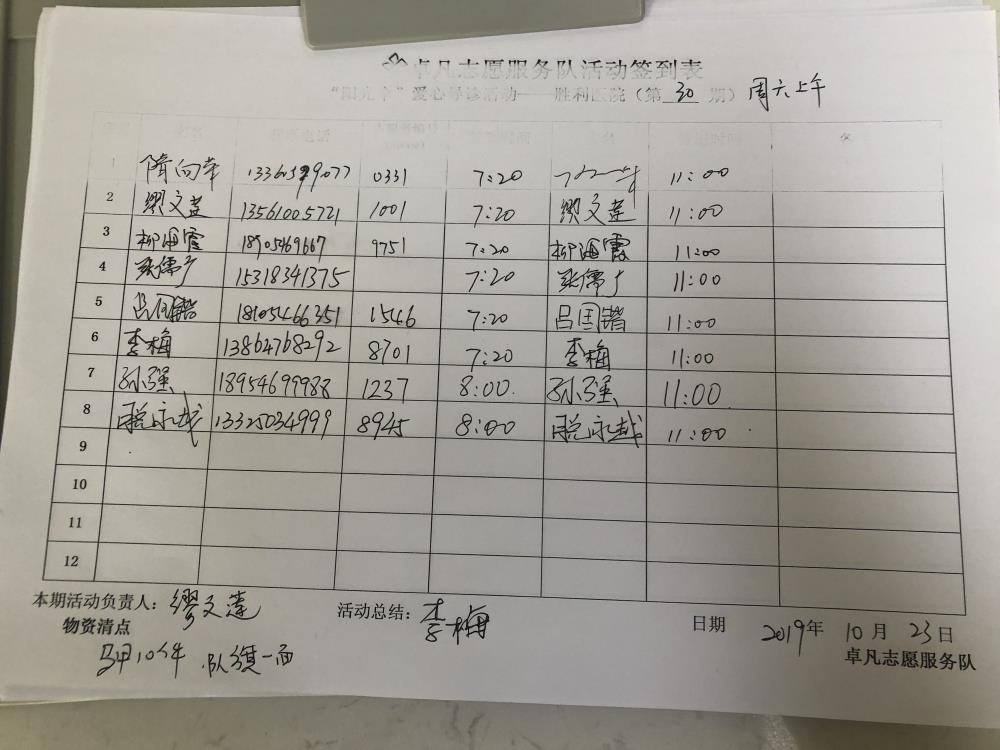 卓凡志愿服务队活动签到表
“阳光年”爱心导诊活动——胜利医院（第 30 期） 周六上午
1 隋向华 0331 7:20 11:00
2 缪文莲 13561005721 1001 7:20 缪文莲 11:00
3 柳海霞 18905469667 9751 7:20 柳海霞 11:00
4 张儒广 15318341375 7:20 张儒广 11:00
5 吕国锴 18105466351 1546 7:20 吕国锴 11:00
6 李梅 13864768292 8701 7:20 李梅 11:00
7 孙强 18954699988 1237 8:00 孙强 11:00
8 永越 13325034999 8945 8:00 永越 11:00
9
10
11
12
本期活动负责人：缪文莲 活动总结：李梅 日期 2019年 10月 23日
物资清点
马甲10件 .队旗一面 卓凡志愿服务队